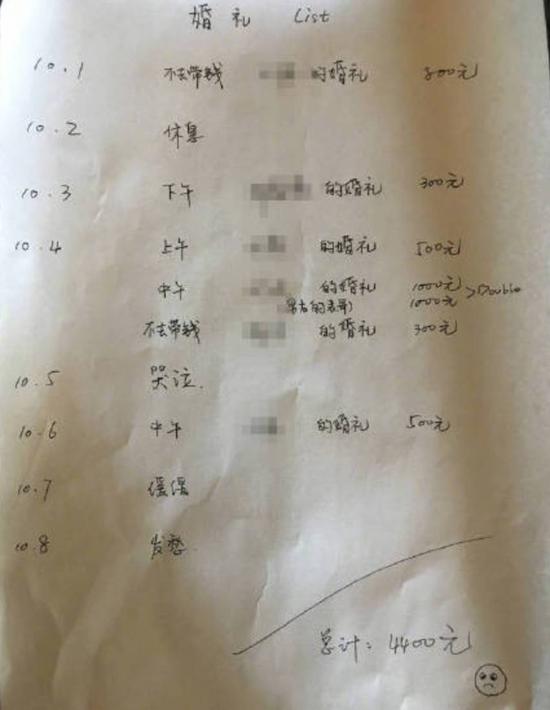 婚礼 List
10.1 不去带钱 的婚礼 800元
10.2 休息
10.3 下午 的婚礼 300元
10.4 上午 的婚礼 500元
中午 的婚礼 1000元 >Double
(男友的表哥) 1000元
不去带钱 的婚礼 300元
10.5 哭泣.
10.6 中午 的婚礼 500元
10.7 缓缓
10.8 发愁.
总计: 4400元